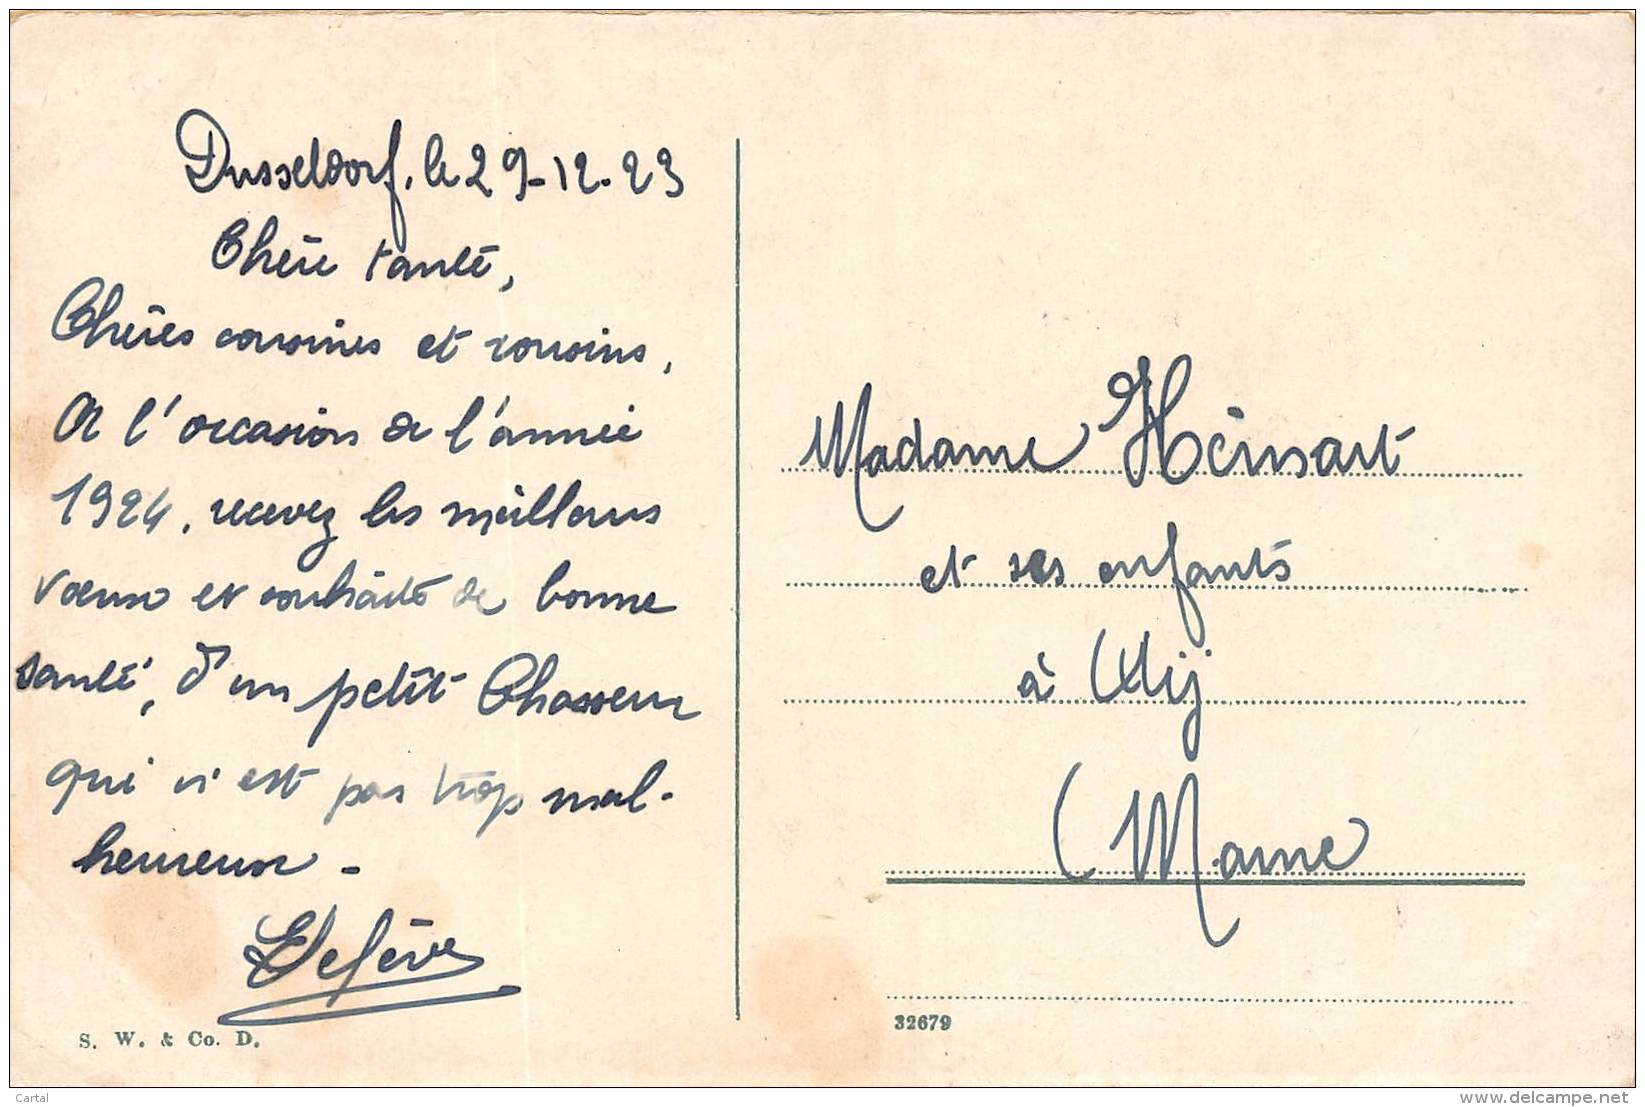 Dusseldorf, le 29-12-23
Chère tante,
Chères cousines et cousins,
A l'occasion de l'année
1924, recevez les meilleurs
vœux et souhaits de bonne
santé, d'un petit Chasseur
qui n'est pas trop mal-
heureux -
Lefèvre
S. W. & Co. D.
Madame Hénsart
et ses enfants
à Aij
(Marne
32679
Cartal
www.delcampe.net